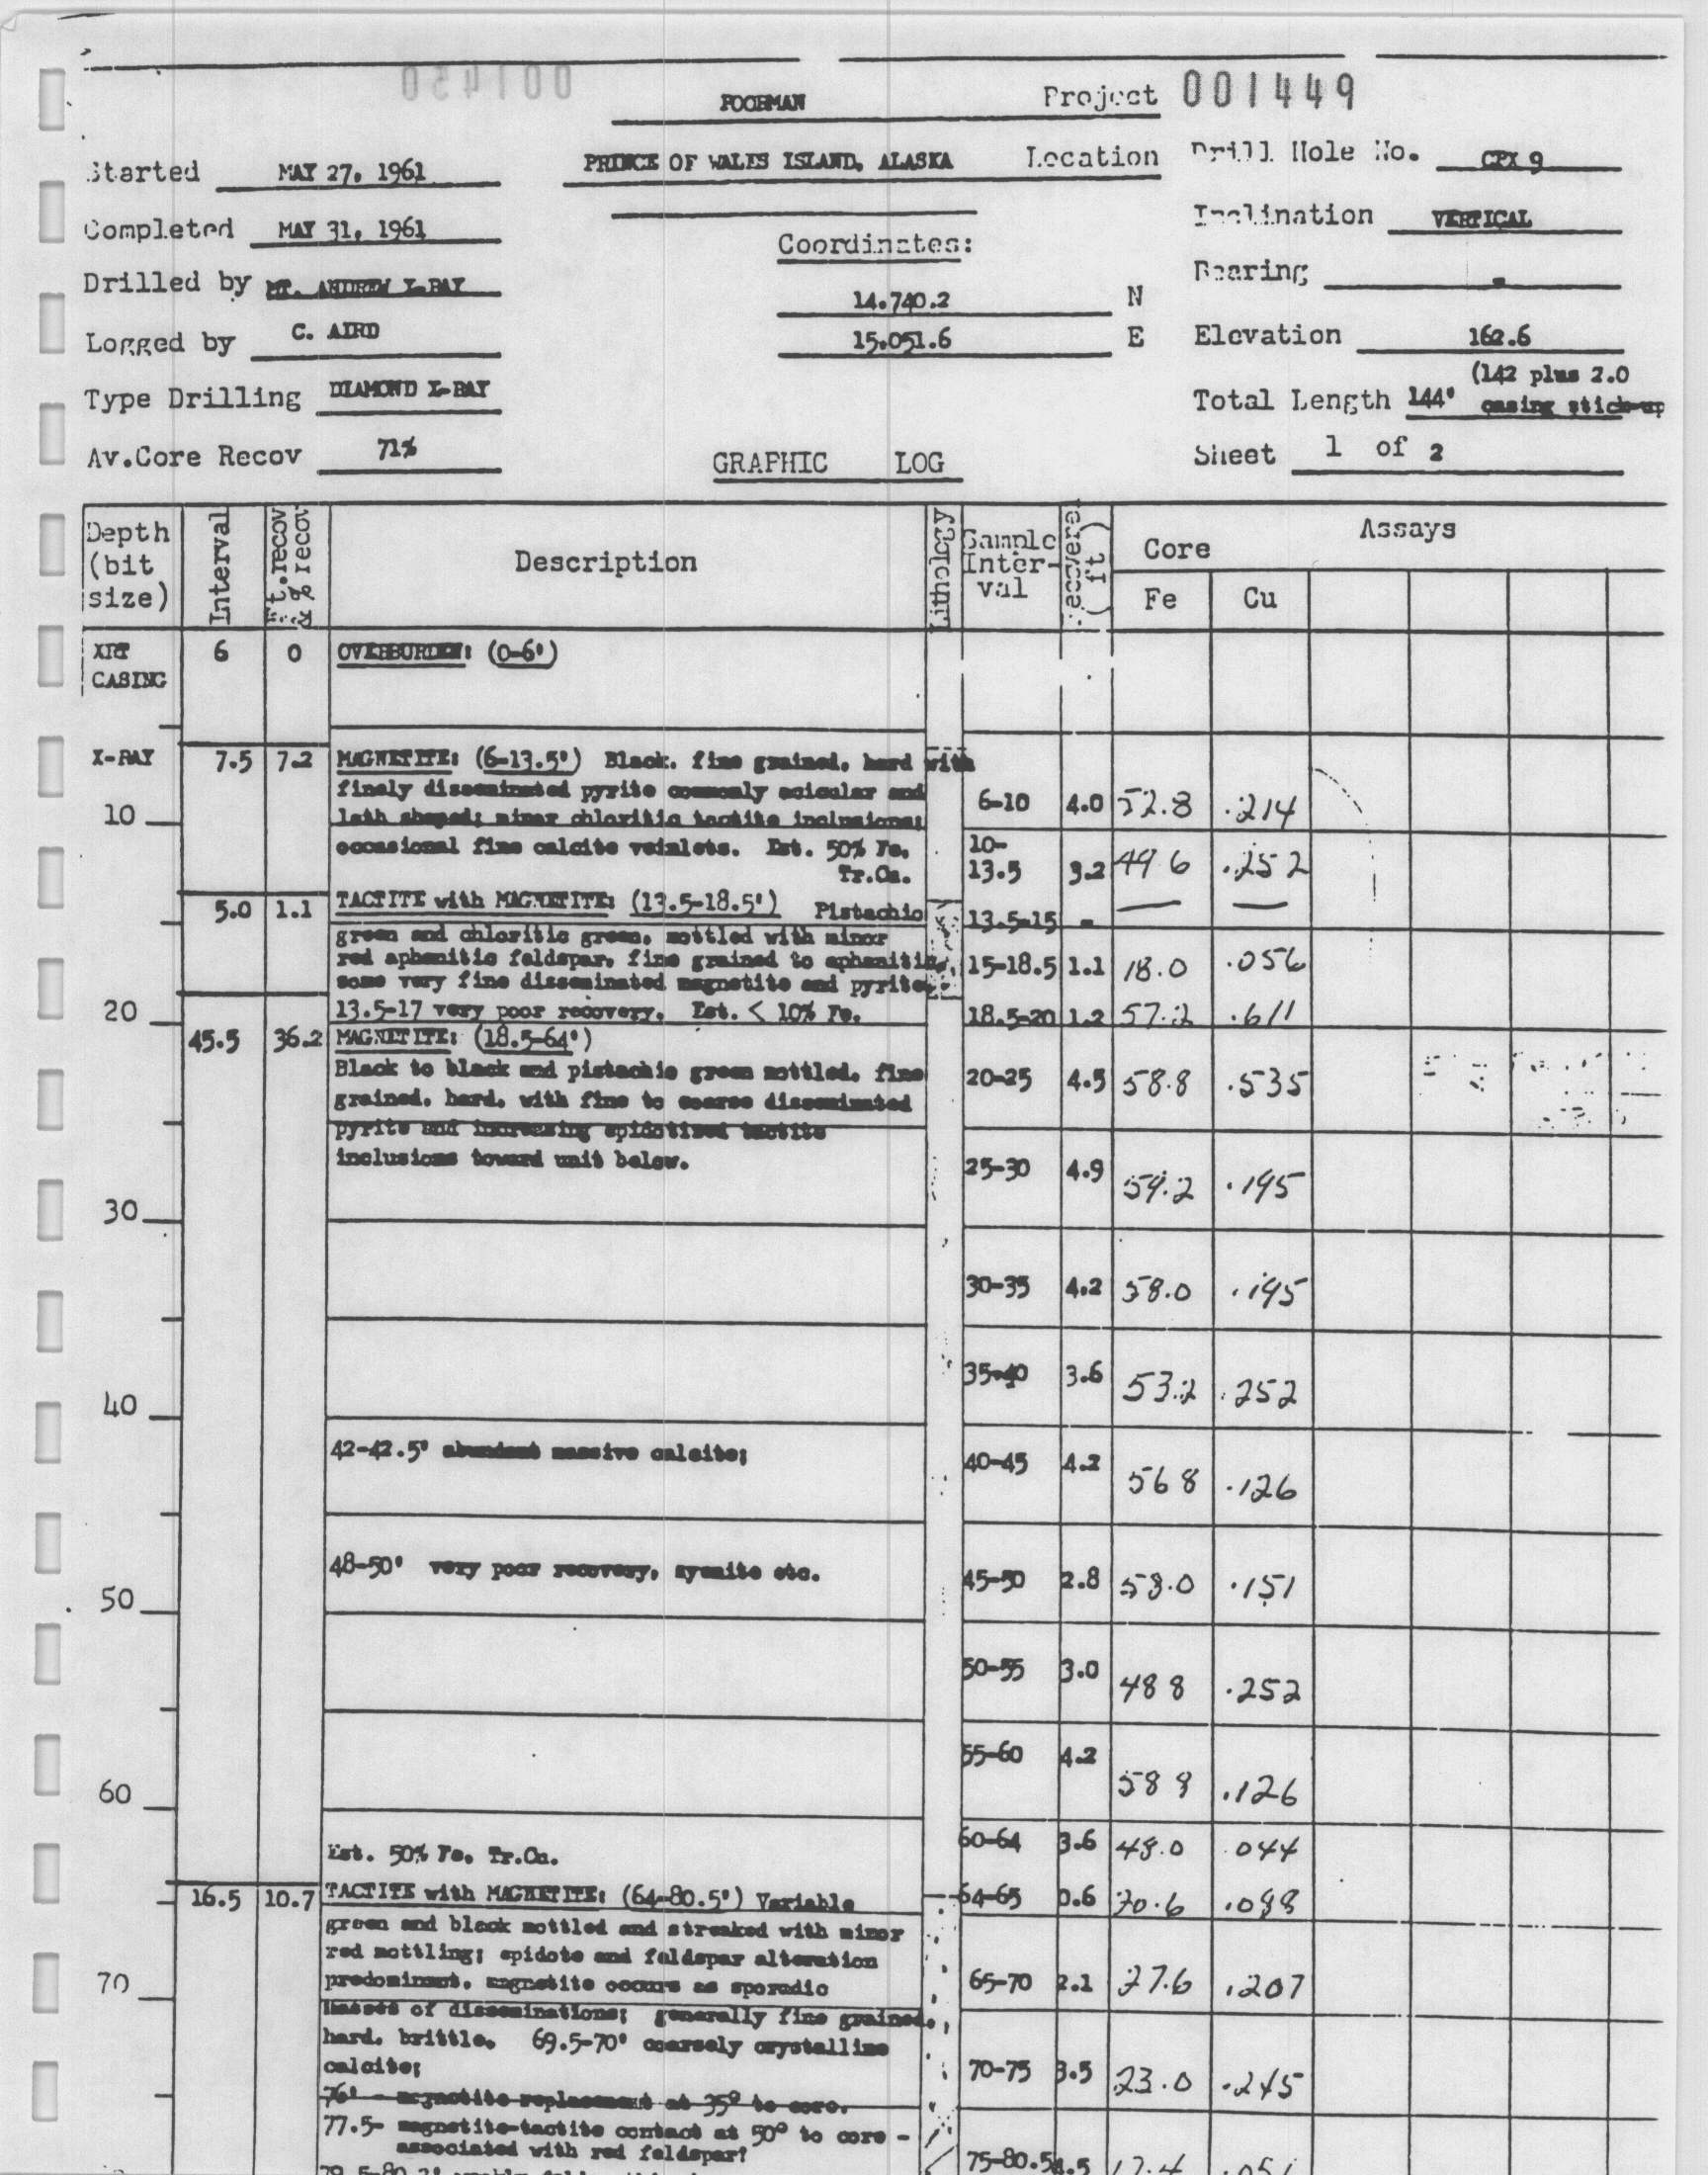 001450
POORMAN Project 001449
Started MAY 27, 1961 PRINCE OF WALES ISLAND, ALASKA Location Drill Hole No. CPX 9
Completed MAY 31, 1961 Inclination VERTICAL
Coordinates:
Drilled by MT. ANDREW X-RAY Bearing -
14.740.2 N
Logged by C. AIRD 15.051.6 E Elevation 162.6
Type Drilling DIAMOND X-RAY Total Length 144' (142 plus 2.0
casing stick-up
Av.Core Recov 71% GRAPHIC LOG Sheet 1 of 2
Depth (bit size) Interval Ft.recov & % recov Description Lithology Sample Inter-val Recovered (ft) Core Assays
Fe Cu
XRT CASING 6 0 OVERBURDEN: (0-6')
X-RAY 7.5 7.2 MAGNETITE: (6-13.5') Black, fine grained, hard with
finely disseminated pyrite commonly acicular and 6-10 4.0 52.8 .214
10 lath shaped; minor chloritic tactite inclusions;
occasional fine calcite veinlets. Est. 50% Fe. 10-
Tr.Cu. 13.5 3.2 49 6 .252
5.0 1.1 TACTITE with MAGNETITE: (13.5-18.5') Pistachio 13.5-15 - — —
green and chloritic green, mottled with minor
red aphanitic feldspar, fine grained to aphanitic, 15-18.5 1.1 18.0 .056
some very fine disseminated magnetite and pyrite.
20 13.5-17 very poor recovery. Est. < 10% Fe. 18.5-20 1.2 57.2 .611
45.5 36.2 MAGNETITE: (18.5-64')
Black to black and pistachio green mottled, fine 20-25 4.5 58.8 .535
grained, hard, with fine to coarse disseminated
pyrite and increasing epidotized tactite
inclusions toward unit below. 25-30 4.9 59.2 .195
30
30-35 4.2 58.0 .195
35-40 3.6 53.2 .252
40
42-42.5' abundant massive calcite; 40-45 4.2 56 8 .126
48-50' very poor recovery, syenite etc. 45-50 2.8 .151
50
50-55 3.0 48 8 .252
55-60 4.2 58 8 .126
60
Est. 50% Fe. Tr.Cu. 60-64 3.6 48.0 .044
16.5 10.7 TACTITE with MAGNETITE: (64-80.5') Variable 64-65 0.6 .088
green and black mottled and streaked with minor
red mottling; epidote and feldspar alteration
70 predominant, magnetite occurs as sporadic 65-70 2.1 27.6 .207
masses of disseminations; generally fine grained,
hard, brittle. 69.5-70' coarsely crystalline
calcite; 70-75 3.5 23.0 .245
76' - magnetite replacement at 35° to core.
77.5- magnetite-tactite contact at 50° to core -
associated with red feldspar? 75-80.5 4.5